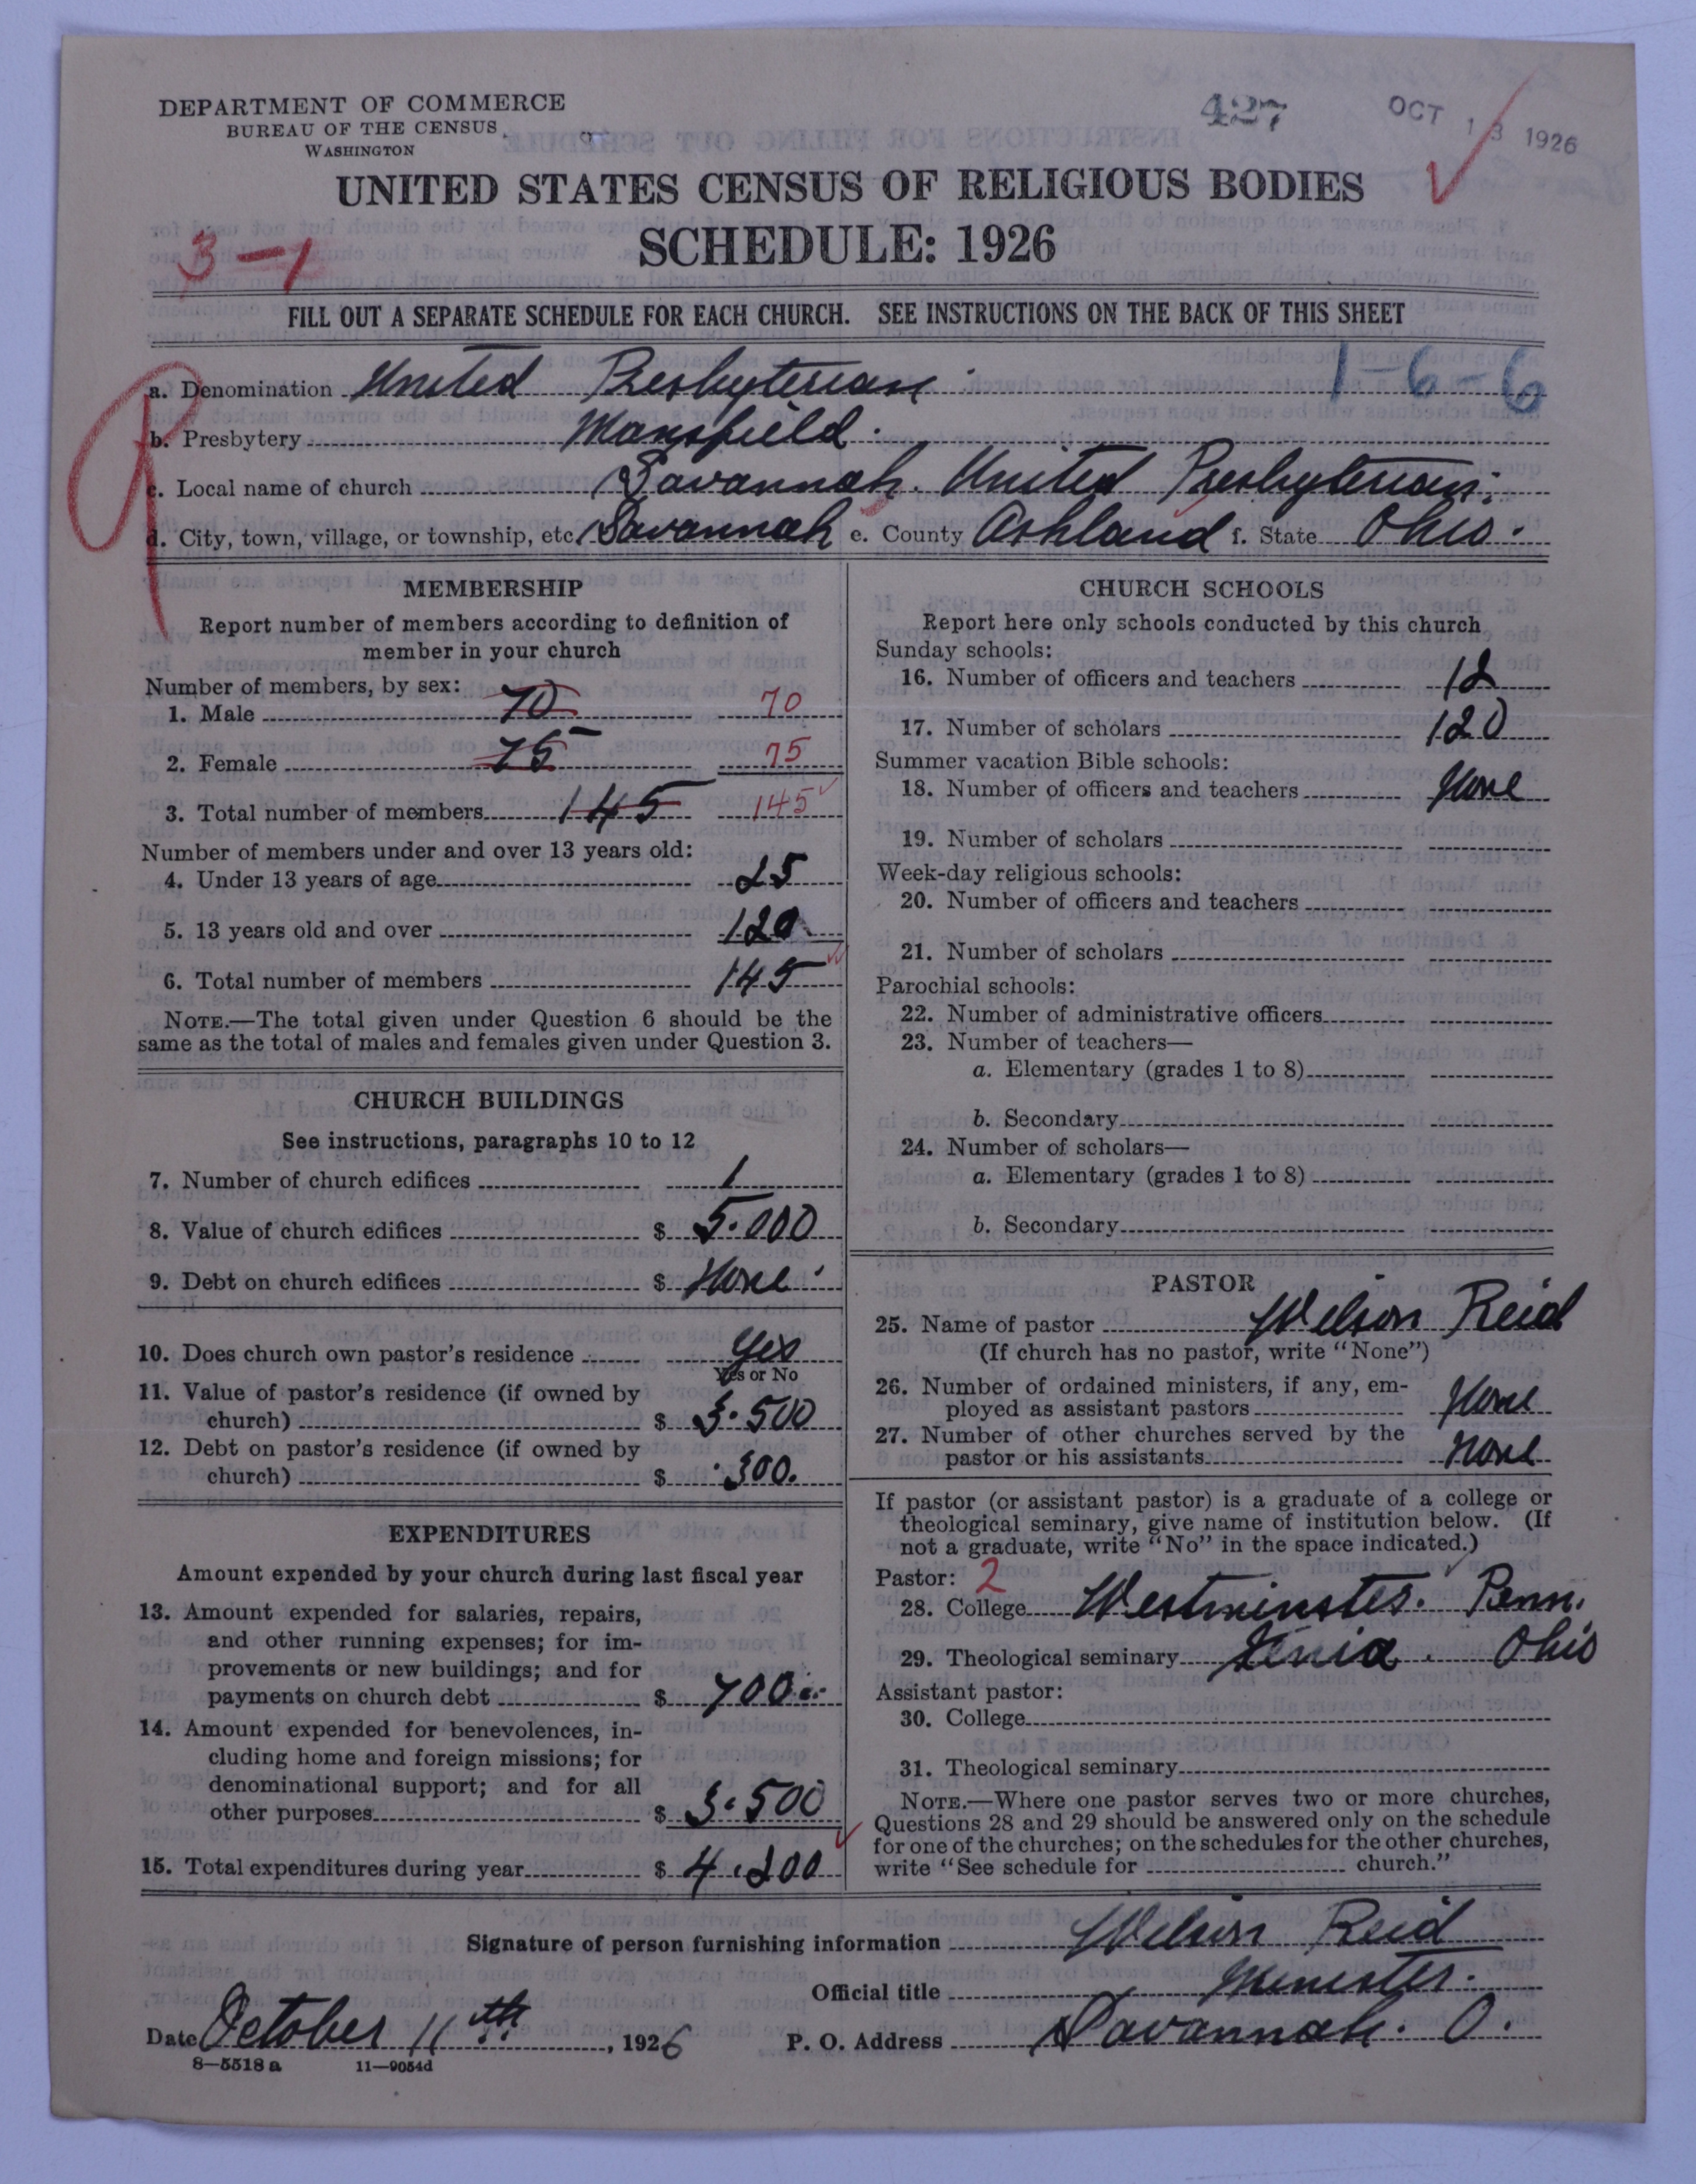 DEPARTMENT OF COMMERCE
BUREAU OF THE CENSUS
WASHINGTON
427
OCT 13 1926
UNITED STATES CENSUS OF RELIGIOUS BODIES
SCHEDULE: 1926
3-1
FILL OUT A SEPARATE SCHEDULE FOR EACH CHURCH. SEE INSTRUCTIONS ON THE BACK OF THIS SHEET
1-6-6
a. Denomination United Presbyterian
b. Presbytery Mansfield.
c. Local name of church Savannah. United Presbyterian.
d. City, town, village, or township, etc. Savannah e. County Ashland f. State Ohio.
MEMBERSHIP
Report number of members according to definition of
member in your church
Number of members, by sex:
1. Male 70 70
2. Female 75 75
3. Total number of members 145 145
Number of members under and over 13 years old:
4. Under 13 years of age 25
5. 13 years old and over 120
6. Total number of members 145
NOTE.—The total given under Question 6 should be the
same as the total of males and females given under Question 3.
CHURCH BUILDINGS
See instructions, paragraphs 10 to 12
7. Number of church edifices 1
8. Value of church edifices $ 5.000
9. Debt on church edifices $ None
10. Does church own pastor's residence Yes
Yes or No
11. Value of pastor's residence (if owned by
church) $ 3.500
12. Debt on pastor's residence (if owned by
church) $ 300.
EXPENDITURES
Amount expended by your church during last fiscal year
13. Amount expended for salaries, repairs,
and other running expenses; for im-
provements or new buildings; and for
payments on church debt $ 700
14. Amount expended for benevolences, in-
cluding home and foreign missions; for
denominational support; and for all
other purposes $ 3.500
15. Total expenditures during year $ 4.200
CHURCH SCHOOLS
Report here only schools conducted by this church
Sunday schools:
16. Number of officers and teachers 12
17. Number of scholars 120
Summer vacation Bible schools:
18. Number of officers and teachers None
19. Number of scholars
Week-day religious schools:
20. Number of officers and teachers
21. Number of scholars
Parochial schools:
22. Number of administrative officers
23. Number of teachers—
a. Elementary (grades 1 to 8)
b. Secondary
24. Number of scholars—
a. Elementary (grades 1 to 8)
b. Secondary
PASTOR
25. Name of pastor Wilson Reid
(If church has no pastor, write "None")
26. Number of ordained ministers, if any, em-
ployed as assistant pastors None
27. Number of other churches served by the
pastor or his assistants None
If pastor (or assistant pastor) is a graduate of a college or
theological seminary, give name of institution below. (If
not a graduate, write "No" in the space indicated.)
Pastor: 2
28. College Westminster. Penn.
29. Theological seminary Xenia. Ohio
Assistant pastor:
30. College
31. Theological seminary
NOTE.—Where one pastor serves two or more churches,
Questions 28 and 29 should be answered only on the schedule
for one of the churches; on the schedules for the other churches,
write "See schedule for church."
Signature of person furnishing information Wilson Reid
Official title Minister.
Date October 11th, 1926 P. O. Address Savannah. O.
8—5518 a 11—9054d